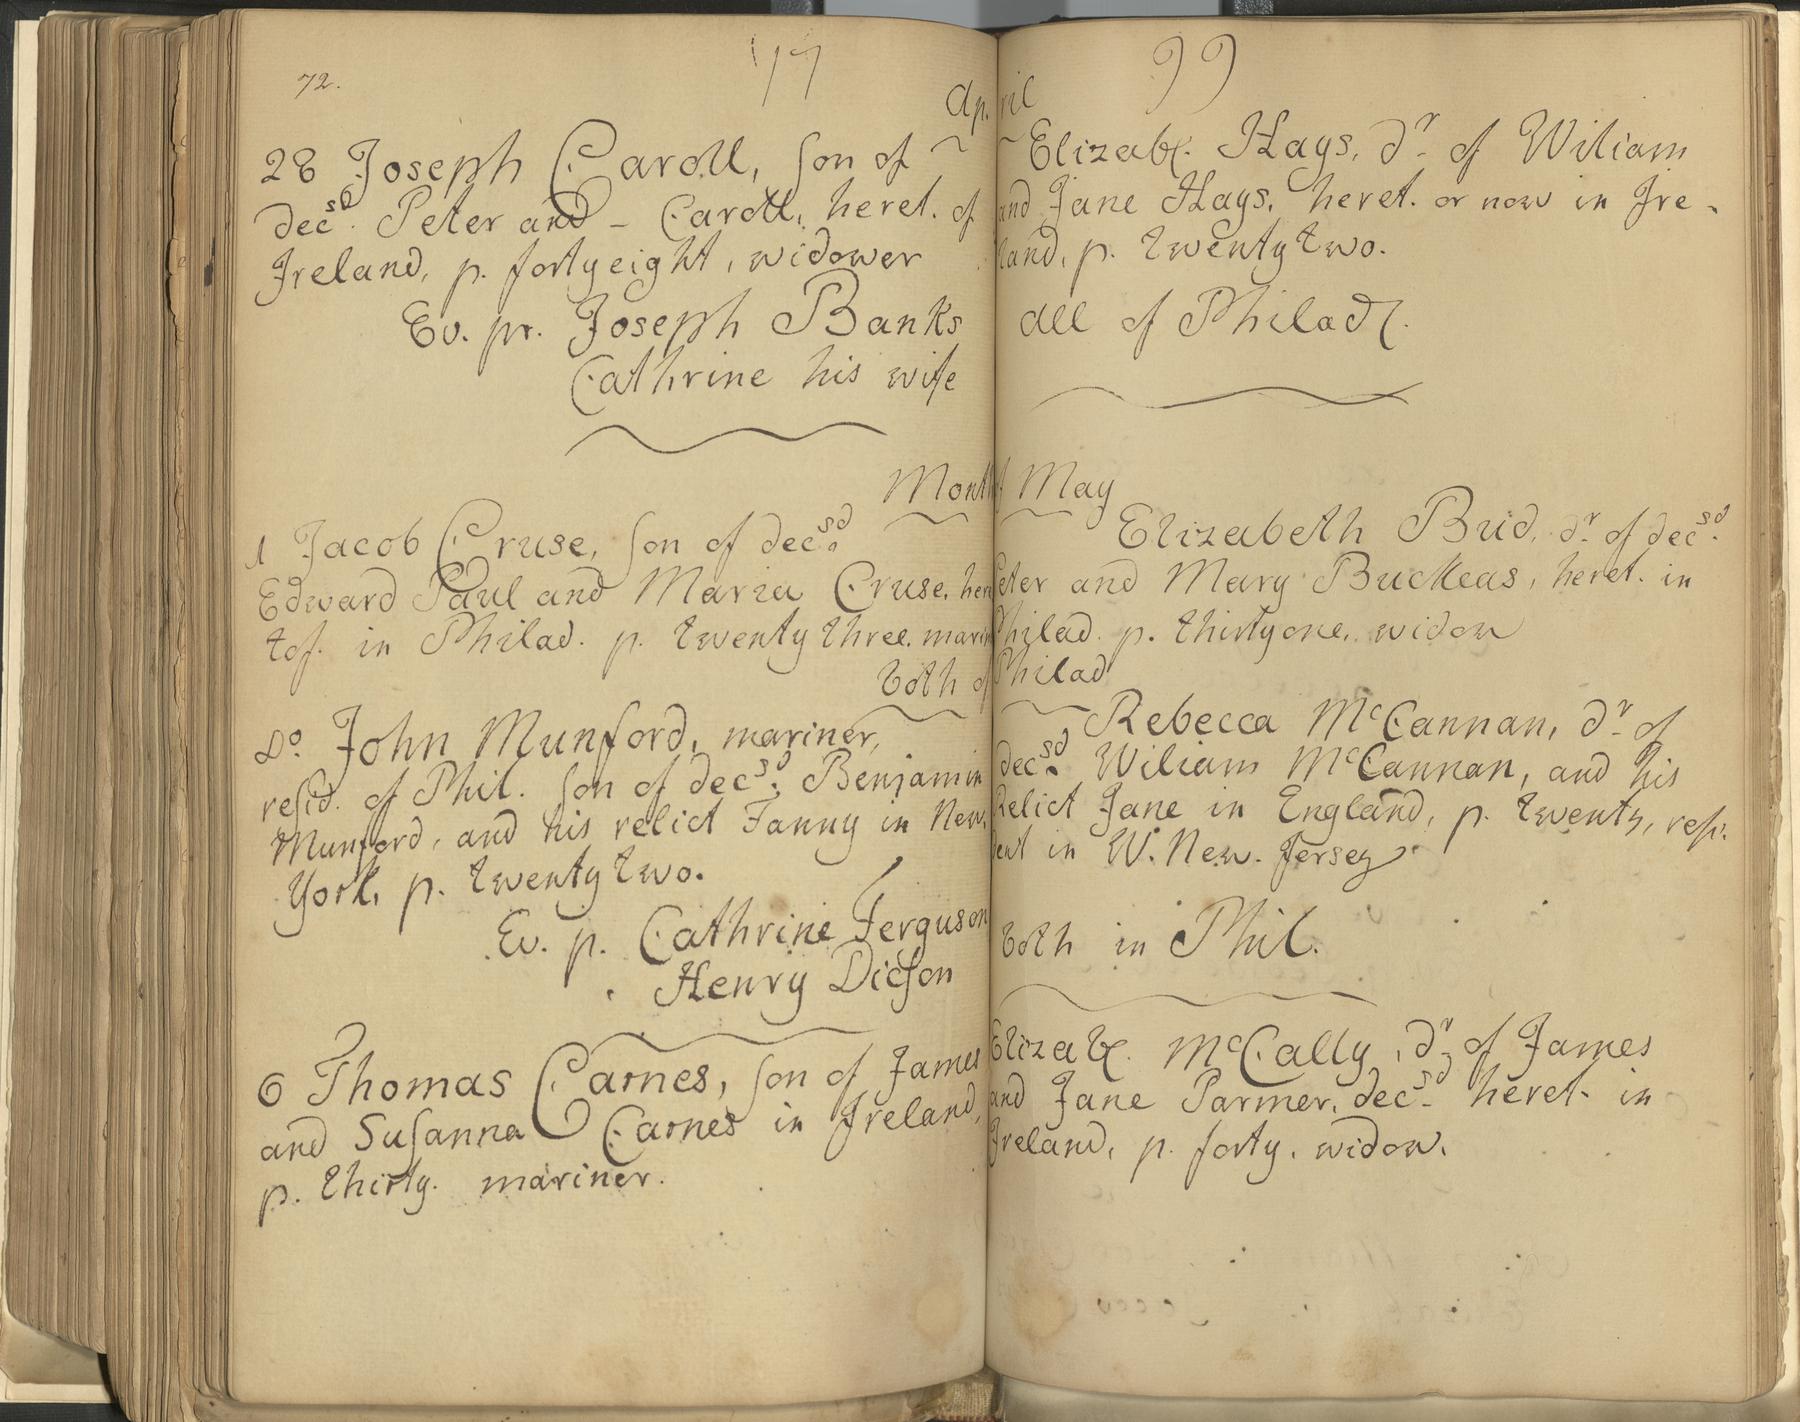 72.
17
Ap.
28 Joseph Caroll, son of
decsd. Peter and - Caroll, heret. of
Ireland, p. fortyeight, widower
Ev. pr. Joseph Banks
Cathrine his wife
Month
1 Jacob Cruse, son of decsd.
Edward Paul and Maria Cruse, here
tof. in Philad. p. twenty three. marin
both of
Do. John Munford, mariner,
resid. of Phil. son of decsd. Benjamin
Munford, and his relict Fanny in New.
York, p. twenty two.
Ev. p. Cathrine Ferguson
Henry Dicson
6 Thomas Carnes, son of James
and Susanna Carnes in Ireland,
p. thirty. mariner.
99
ril
Elizab. Hays, dr. of Wiliam
and Jane Hays, heret. or now in Ire-
land, p. twenty two.
all of Philad.
of May
Elizabeth Brid, dr. of decsd.
Peter and Mary Buckeas, heret. in
Philad. p. thirtyone, widow
Philad
Rebecca McCannan, dr. of
decsd. Wiliam McCannan, and his
Relict Jane in England, p. twenty, resi.
dent in W. New. Jersey
both in Phil.
Elizab. McCally, dr. of James
and Jane Parmer, decsd. heret. in
Ireland, p. forty, widow.